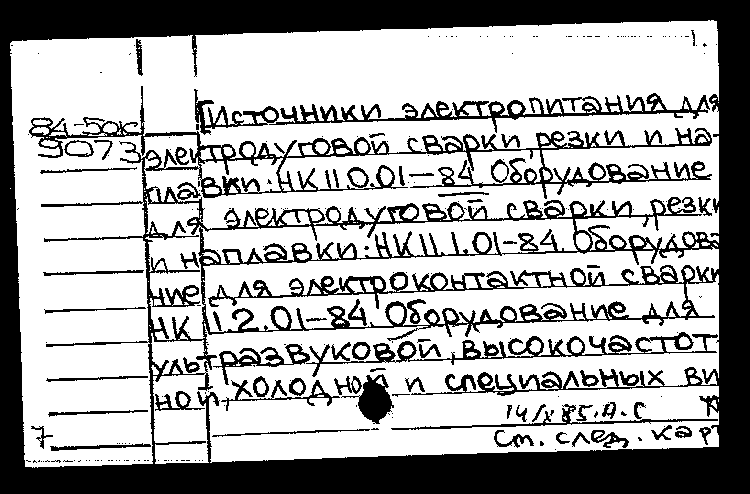 1.
[Источники электропитания для
84-5ок
9073 электродуговой сварки, резки и на-
плавки: НК 11.0.01-84. Оборудование
для электродуговой сварки, резки
и наплавки: НК 11.1.01-84. Оборудова-
ние для электроконтактной сварки
НК 11.2.01-84. Оборудование для
ультразвуковой, высокочастот-
ной, холодной и специальных ви
14/X 85. А.С
7 См. след. карт